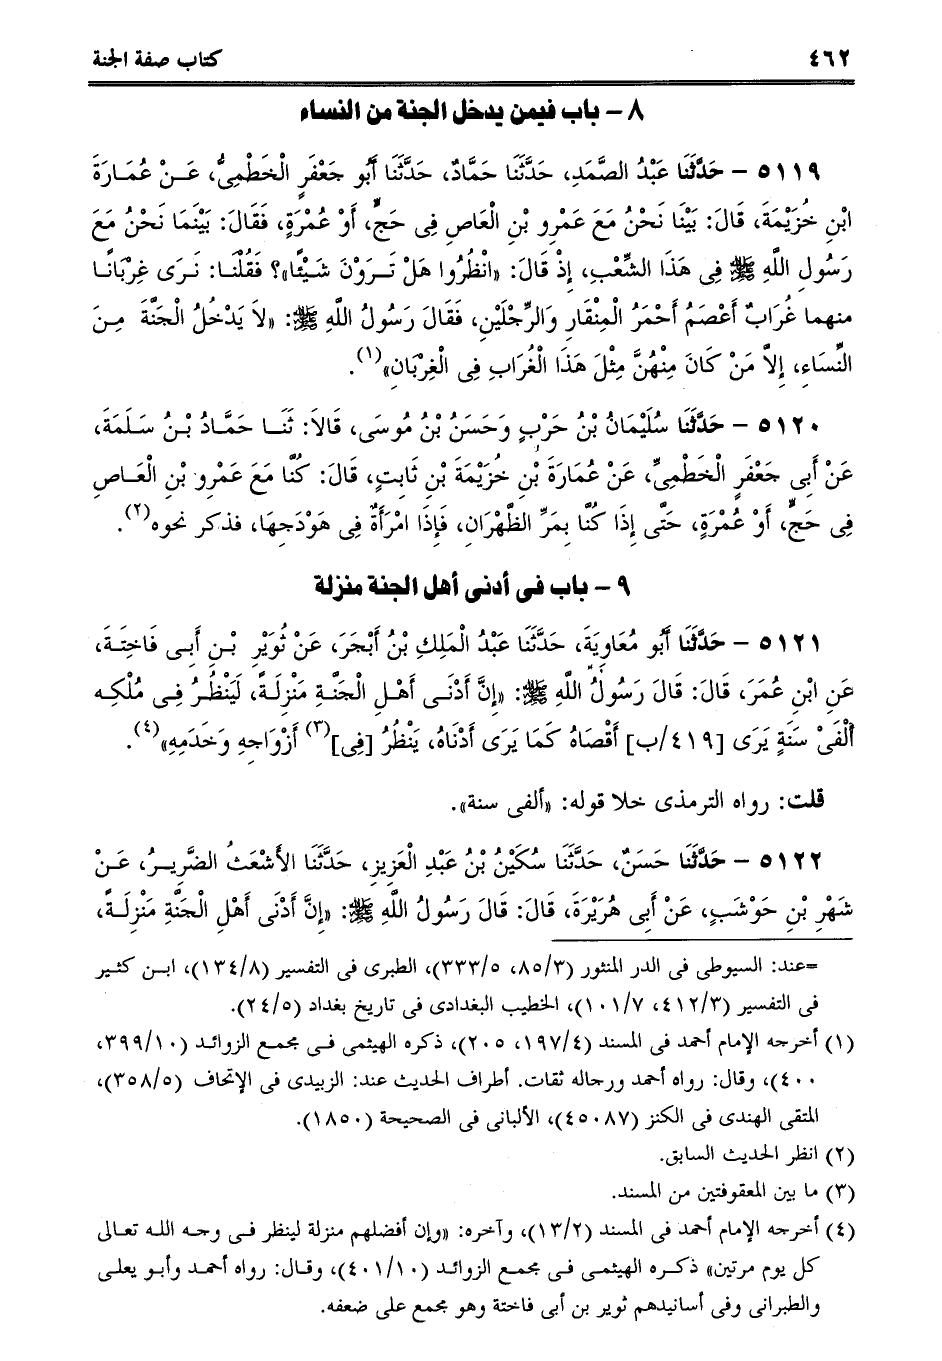 ٤٦٢ كتاب صفة الجنة
٨ – باب فيمن يدخل الجنة من النساء
٥١١٩ – حَدَّثَنَا عَبْدُ الصَّمَدِ، حَدَّثَنَا حَمَّادٌ، حَدَّثَنَا أَبُو جَعْفَرٍ الْخَطْمِىُّ، عَـنْ عُمَـارَةَ
ابْنِ خُزَيْمَةَ، قَالَ: بَيْنَا نَحْنُ مَعَ عَمْرِو بْنِ الْعَاصِ فِى حَجٍّ، أَوْ عُمْرَةٍ، فَقَالَ: بَيْنَمَا نَحْنُ مَعَ
رَسُولِ اللَّهِ ﷺ فِى هَذَا الشِّعْبِ، إِذْ قَالَ: «انْظُرُوا هَلْ تَـرَوْنَ شَـيْئًا»؟ فَقُلْنَـا: نَـرَى غِرْبَانًـا
منهما غُرَابٌ أَعْصَمُ أَحْمَرُ الْمِنْقَارِ وَالرِّجْلَيْنِ، فَقَالَ رَسُولُ اللَّهِ ﷺ: «لاَ يَدْخُلُ الْجَنَّةَ مِـنَ
النِّسَاءِ، إِلاَّ مَنْ كَانَ مِنْهُنَّ مِثْلَ هَذَا الْغُرَابِ فِى الْغِرْبَانِ»(١).
٥١٢٠ – حَدَّثَنَا سُلَيْمَانُ بْنُ حَرْبٍ وَحَسَنُ بْنُ مُوسَى، قَالاَ: ثَنَـا حَمَّـادُ بْـنُ سَـلَمَةَ،
عَنْ أَبِى جَعْفَرٍ الْخَطْمِىِّ، عَنْ عُمَارَةَ بْنِ خُزَيْمَةَ بْنِ ثَابِتٍ، قَالَ: كُنَّا مَعَ عَمْرِو بْنِ الْعَـاصِ
فِى حَجٍّ، أَوْ عُمْرَةٍ، حَتَّى إِذَا كُنَّا بِمَرِّ الظَّهْرَانِ، فَإِذَا امْرَأَةٌ فِى هَوْدَجِهَا، فذكر نحوه(٢).
٩ – باب فى أدنى أهل الجنة منزلة
٥١٢١ – حَدَّثَنَا أَبُو مُعَاوِيَةَ، حَدَّثَنَا عَبْدُ الْمَلِكِ بْنُ أَبْجَرَ، عَنْ ثُوَيْرِ بْـنِ أَبِـى فَاخِتَـةَ،
عَنِ ابْنِ عُمَرَ، قَالَ: قَالَ رَسُولُ اللَّهِ ﷺ: «إِنَّ أَدْنَـى أَهْـلِ الْجَنَّـةِ مَنْزِلَـةً، لَيَنْظُـرُ فِـى مُلْكِـهِ
أَلْفَىْ سَنَةٍ يَرَى [٤١٩/ب] أَقْصَاهُ كَمَا يَرَى أَدْنَاهُ، يَنْظُرُ [فِى](٣) أَزْوَاجِهِ وَخَدَمِهِ»(٤).
قلت: رواه الترمذى خلا قوله: «ألفى سنة».
٥١٢٢ – حَدَّثَنَا حَسَنٌ، حَدَّثَنَا سُكَيْنُ بْنُ عَبْدِ الْعَزِيزِ، حَدَّثَنَا الأَشْعَثُ الضَّرِيـرُ، عَـنْ
شَهْرِ بْنِ حَوْشَبٍ، عَنْ أَبِى هُرَيْرَةَ، قَالَ: قَالَ رَسُولُ اللَّهِ ﷺ: «إِنَّ أَدْنَى أَهْلِ الْجَنَّةِ مَنْزِلَـةً،
=عند: السيوطى فى الدر المنثور (٨٥/٣، ٣٣٣/٥)، الطبرى فى التفسير (١٣٤/٨)، ابـن كثـير
فى التفسير (٤١٢/٣، ١٠١/٧)، الخطيب البغدادى فى تاريخ بغداد (٢٤/٥).
(١) أخرجه الإمام أحمد فى المسند (١٩٧/٤، ٢٠٥)، ذكره الهيثمى فـى مجمـع الزوائـد (٣٩٩/١٠،
٤٠٠)، وقال: رواه أحمد ورجاله ثقات. أطراف الحديث عند: الزبيدى فى الإتحاف (٣٥٨/٥)،
المتقى الهندى فى الكنز (٤٥٠٨٧)، الألبانى فى الصحيحة (١٨٥٠).
(٢) انظر الحديث السابق.
(٣) ما بين المعقوفتين من المسند.
(٤) أخرجه الإمام أحمد فى المسند (١٣/٢)، وآخره: «وإن أفضلهم منزلة لينظر فـى وجـه اللـه تعـالى
كل يوم مرتين» ذكـره الهيثمـى فـى مجمـع الزوائـد (٤٠١/١٠)، وقـال: رواه أحمـد وأبـو يعلـى
والطبرانى وفى أسانيدهم ثوير بن أبى فاختة وهو مجمع على ضعفه.